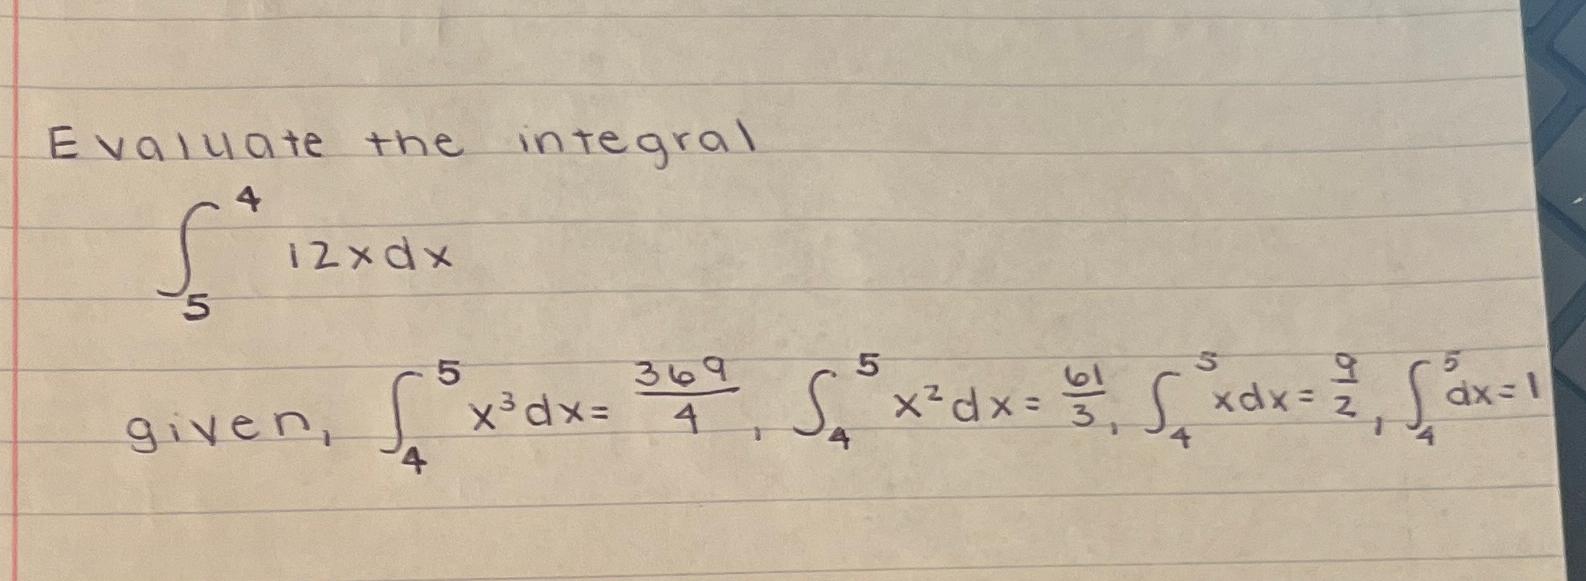 Evaluate the integral
∫₅⁴ 12xdx
given, ∫₄⁵ x³dx = 369/4, ∫₄⁵ x²dx = 61/3, ∫₄⁵ xdx = 9/2, ∫₄⁵ dx = 1